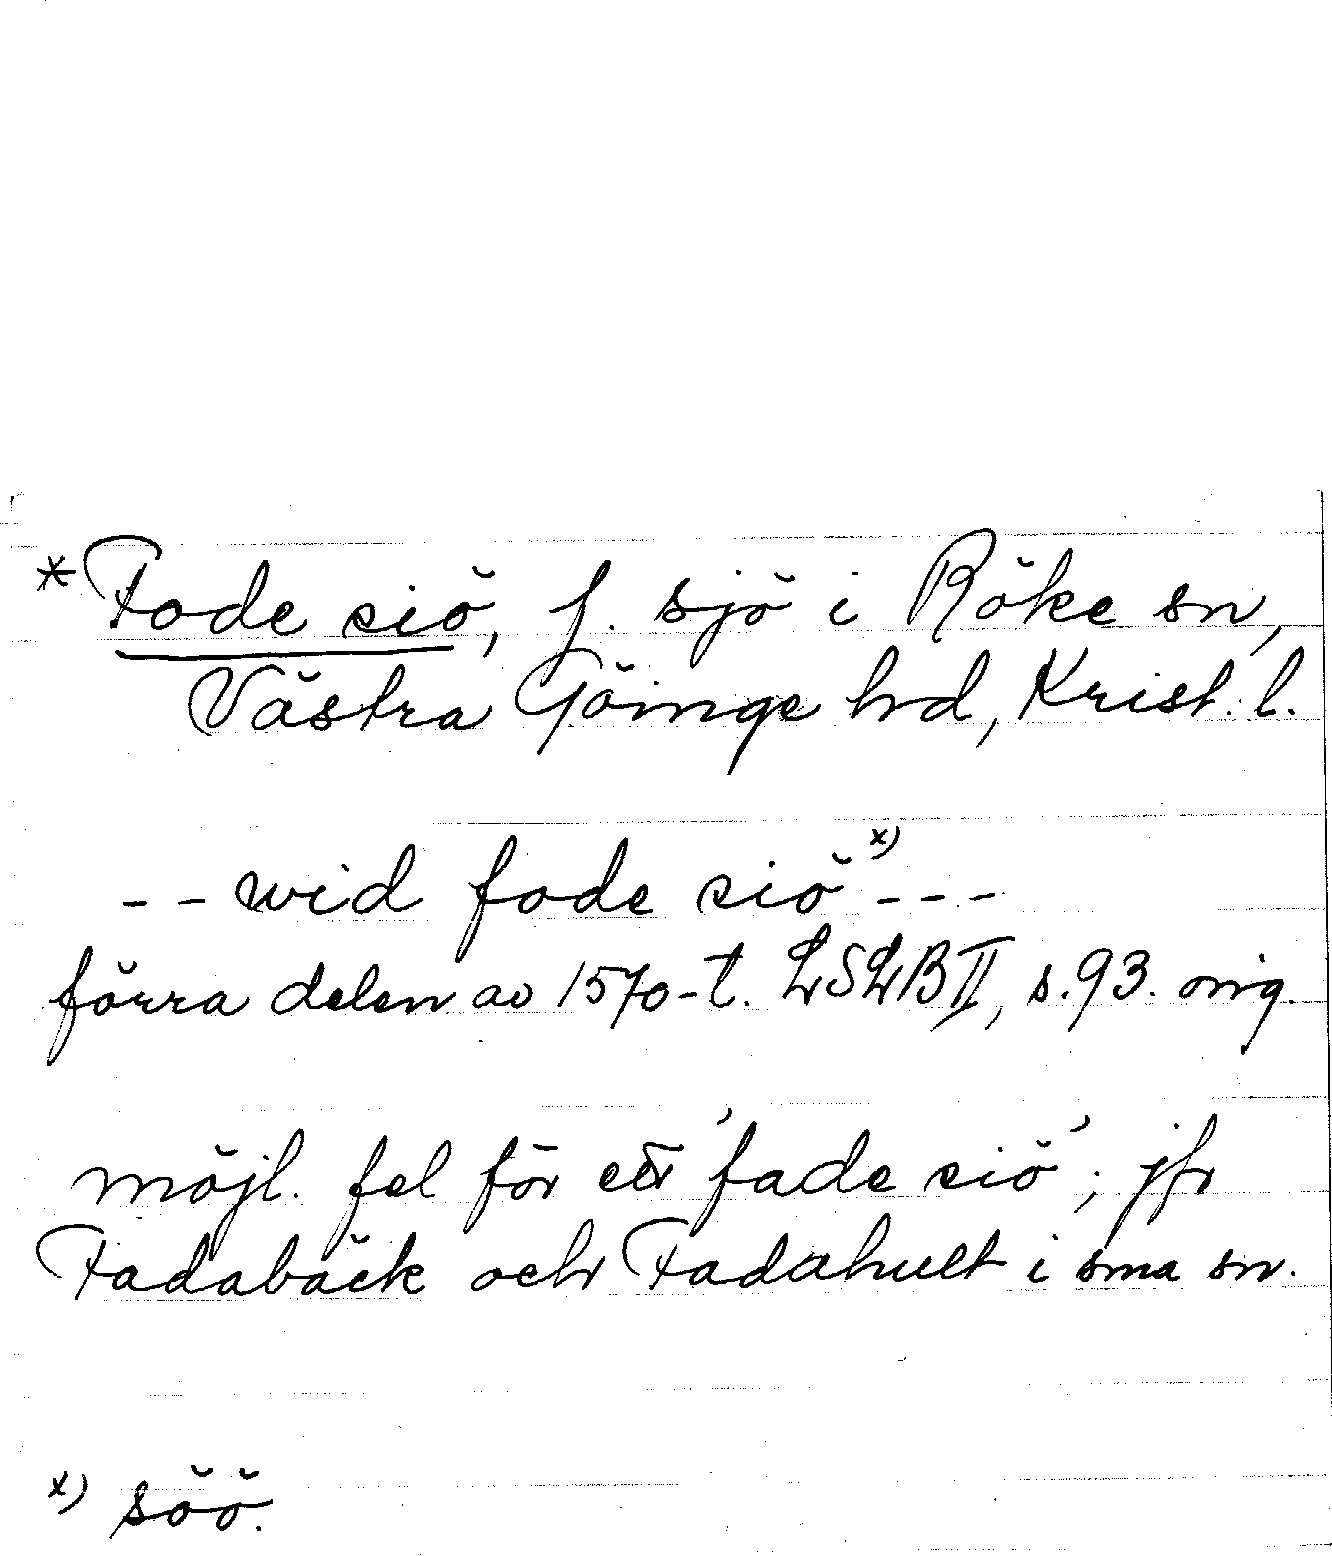 * Fode siö, f. sjö i Röke sn,
Västra Göinge hd, Krist. l.
-- wid fode siö x) ---
förra delen av 1570-t. LSLB II, s. 93. orig.
möjl. fel för ett 'fade siö'; jfr
Fadabäck och Fadahult i sma sn.
x) söö.